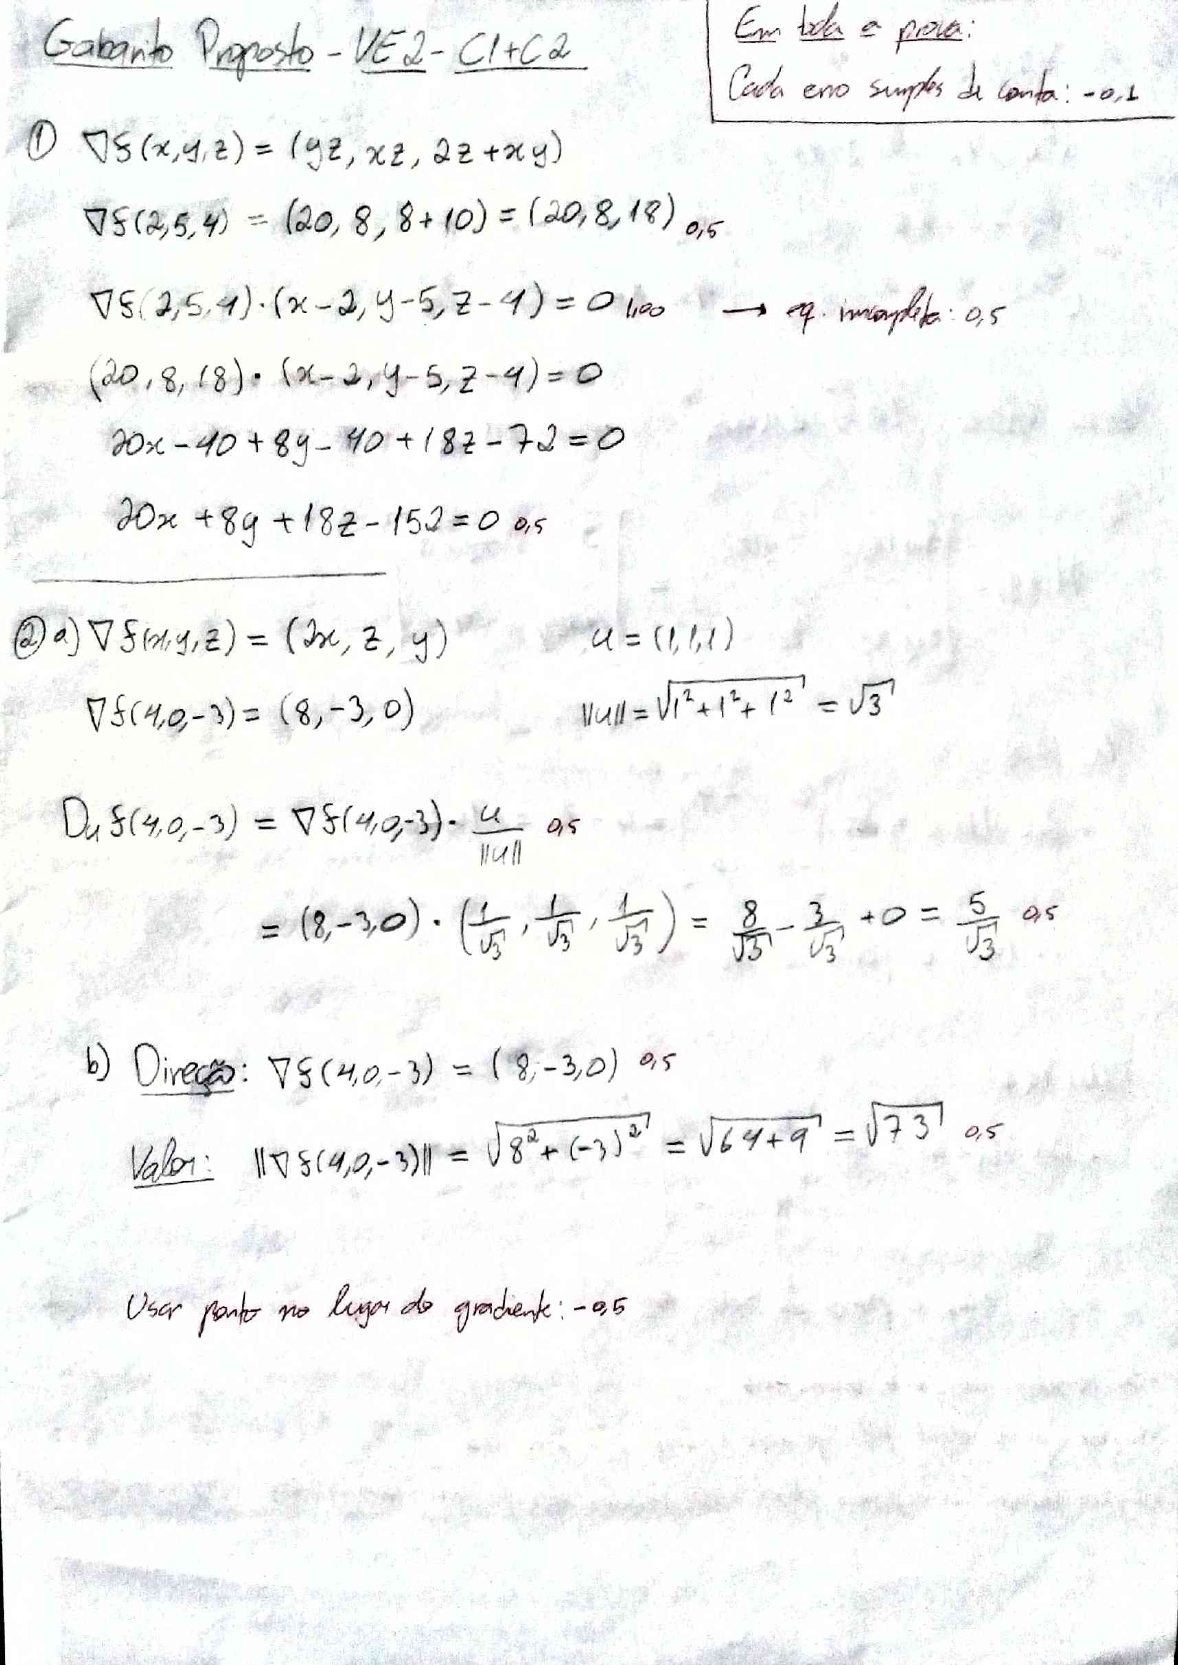 Gabarito Proposto - VE2 - C1+C2
Em toda a prova:
Cada erro simples de conta: -0,1
① ∇f(x,y,z) = (yz, xz, 2z+xy)
∇f(2,5,4) = (20, 8, 8+10) = (20,8,18) 0,5
∇f(2,5,4)·(x-2, y-5, z-4) = 0 1,00 → eq. incompleta: 0,5
(20,8,18)·(x-2, y-5, z-4) = 0
20x-40+8y-40+18z-72=0
20x+8y+18z-152=0 0,5
② a) ∇f(x,y,z) = (2x, z, y) u = (1,1,1)
∇f(4,0,-3) = (8,-3,0) ||u|| = √(1²+1²+1²) = √3
Du f(4,0,-3) = ∇f(4,0,-3)· u/||u|| 0,5
= (8,-3,0)·(1/√3, 1/√3, 1/√3) = 8/√3 - 3/√3 + 0 = 5/√3 0,5
b) Direção: ∇f(4,0,-3) = (8,-3,0) 0,5
Valor: ||∇f(4,0,-3)|| = √(8²+(-3)²) = √(64+9) = √73 0,5
Usar ponto no lugar do gradiente: -0,5